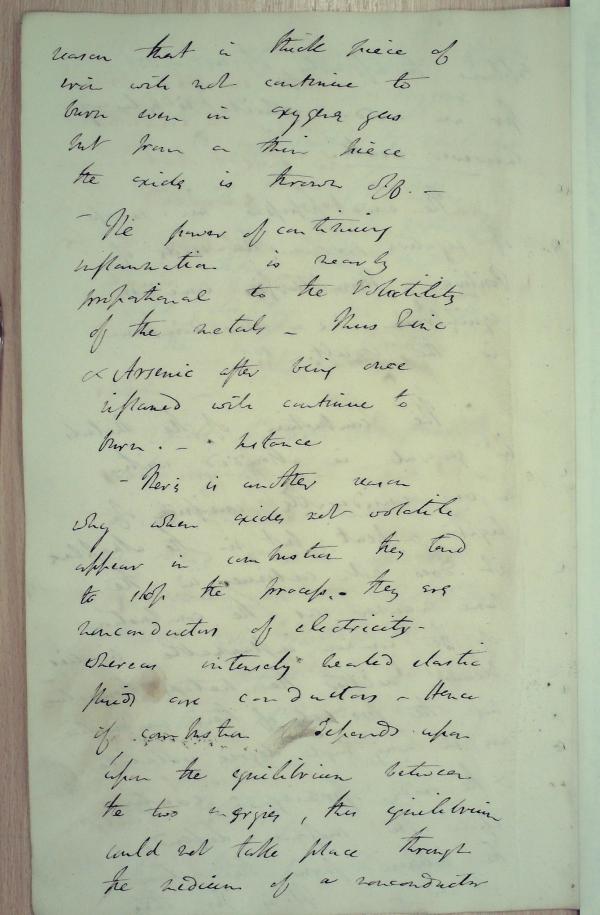 reason that a thick piece of
iron will not continue to
burn even in oxygene gas
but from a thin piece
the oxide is thrown off. –
– The power of continuing
inflammation is nearly
proportional to the volatility
of the metals – Thus Zinc
& Arsenic after being once
inflamed will continue to
burn. – – Instance
– There is another reason
why when oxides not volatile
appear in combustion they tend
to stop the process. – they are
nonconductors of electricity –
whereas intensely heated elastic
fluids are conductors – Hence
if combustion depends upon
upon the equilibrium between
the two energies, this equilibrium
could not take place through
the medium of a nonconductor